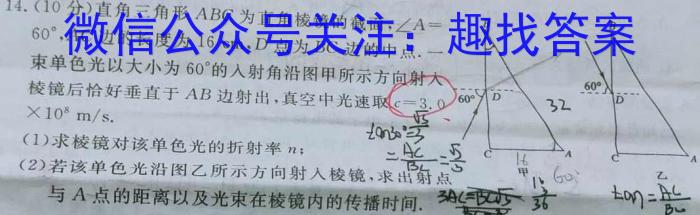 14.(10分)直角三角形ABC为直角棱镜的截面,∠A=
60°, 边的长度为16 cm,D点为BC边的中点.一
微信公众号关注：趣找答案
束单色光以大小为60°的入射角沿图甲所示方向射入
棱镜后恰好垂直于AB边射出,真空中光速取c=3.0
×10⁸ m/s.
(1)求棱镜对该单色光的折射率n;
(2)若该单色光沿图乙所示方向射入棱镜,求出射点
与A点的距离以及光束在棱镜内的传播时间.
60° D 32
C 16 A
甲
60°
60° D
C A
乙
tan30°=
= AC/BC = √3/3
tan = AC/BC